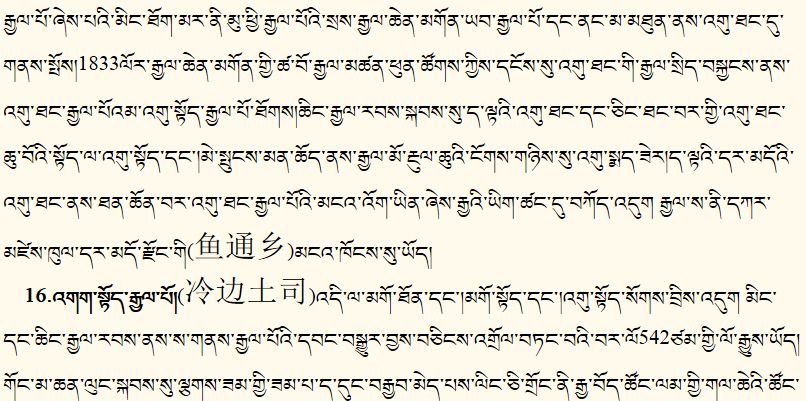 རྒྱལ་པོ་ཞེས་པའི་མིང་ཐོག་མར་ནི་མུ་ཕྱི་རྒྱལ་པོའི་སྲས་རྒྱལ་ཆེན་མགོན་ཡབ་རྒྱལ་པོ་དང་ནང་མ་མཐུན་ནས་འགུ་ཐང་དུ་
གནས་སྤོས།1833ལོར་རྒྱལ་ཆེན་མགོན་གྱི་ཚ་བོ་རྒྱལ་མཚན་ཕུན་ཚོགས་ཀྱིས་དངོས་སུ་འགུ་ཐང་གི་རྒྱལ་སྲིད་བསྐྱངས་ནས་
འགུ་ཐང་རྒྱལ་པོའམ་འགུ་སྟོད་རྒྱལ་པོ་ཐོགས།ཆིང་རྒྱལ་རབས་སྐབས་སུ་ད་ལྟའི་འགུ་ཐང་དང་ཅིང་ཐང་བར་གྱི་འགུ་ཐང་
ཆུ་བོའི་སྟོད་ལ་འགུ་སྟོད་དང་།མེ་སྤུངས་མན་ཆོད་ནས་རྒྱལ་མོ་རྔུལ་ཆུའི་ངོགས་གཉིས་སུ་འགུ་སྨད་ཟེར།ད་ལྟའི་དར་མདོའི་
འགུ་ཐང་ནས་ཐན་ཚོན་བར་འགུ་ཐང་རྒྱལ་པོའི་མངའ་འོག་ཡིན་ཞེས་རྒྱའི་ཡིག་ཚང་དུ་བཀོད་འདུག རྒྱལ་ས་ནི་དཀར་
མཛེས་ཁུལ་དར་མདོ་རྫོང་གི(鱼通乡)མངའ་ཁོངས་སུ་ཡོད།
16.འགག་སྟོད་རྒྱལ་པོ།(冷边土司)འདི་ལ་མགོ་ཐོན་དང་།མགོ་སྟོད་དང་།འགུ་སྟོད་སོགས་བྲིས་འདུག མིང་
དང་ཆིང་རྒྱལ་རབས་ནས་ས་གནས་རྒྱལ་པོའི་དབང་བསྒྱུར་བྱས་བཅིངས་འགྲོལ་བཏང་བའི་བར་ལོ542ཙམ་གྱི་ལོ་རྒྱུས་ཡོད།
གོང་མ་ཆན་ལུང་སྐབས་སུ་ལྕགས་ཟམ་གྱི་ཟམ་པ་ད་དུང་བརྒྱབ་མེད་པས་ལིང་ཅི་གྲོང་ནི་རྒྱ་བོད་ཚོང་ལམ་གྱི་གལ་ཆེའི་ཚོང་